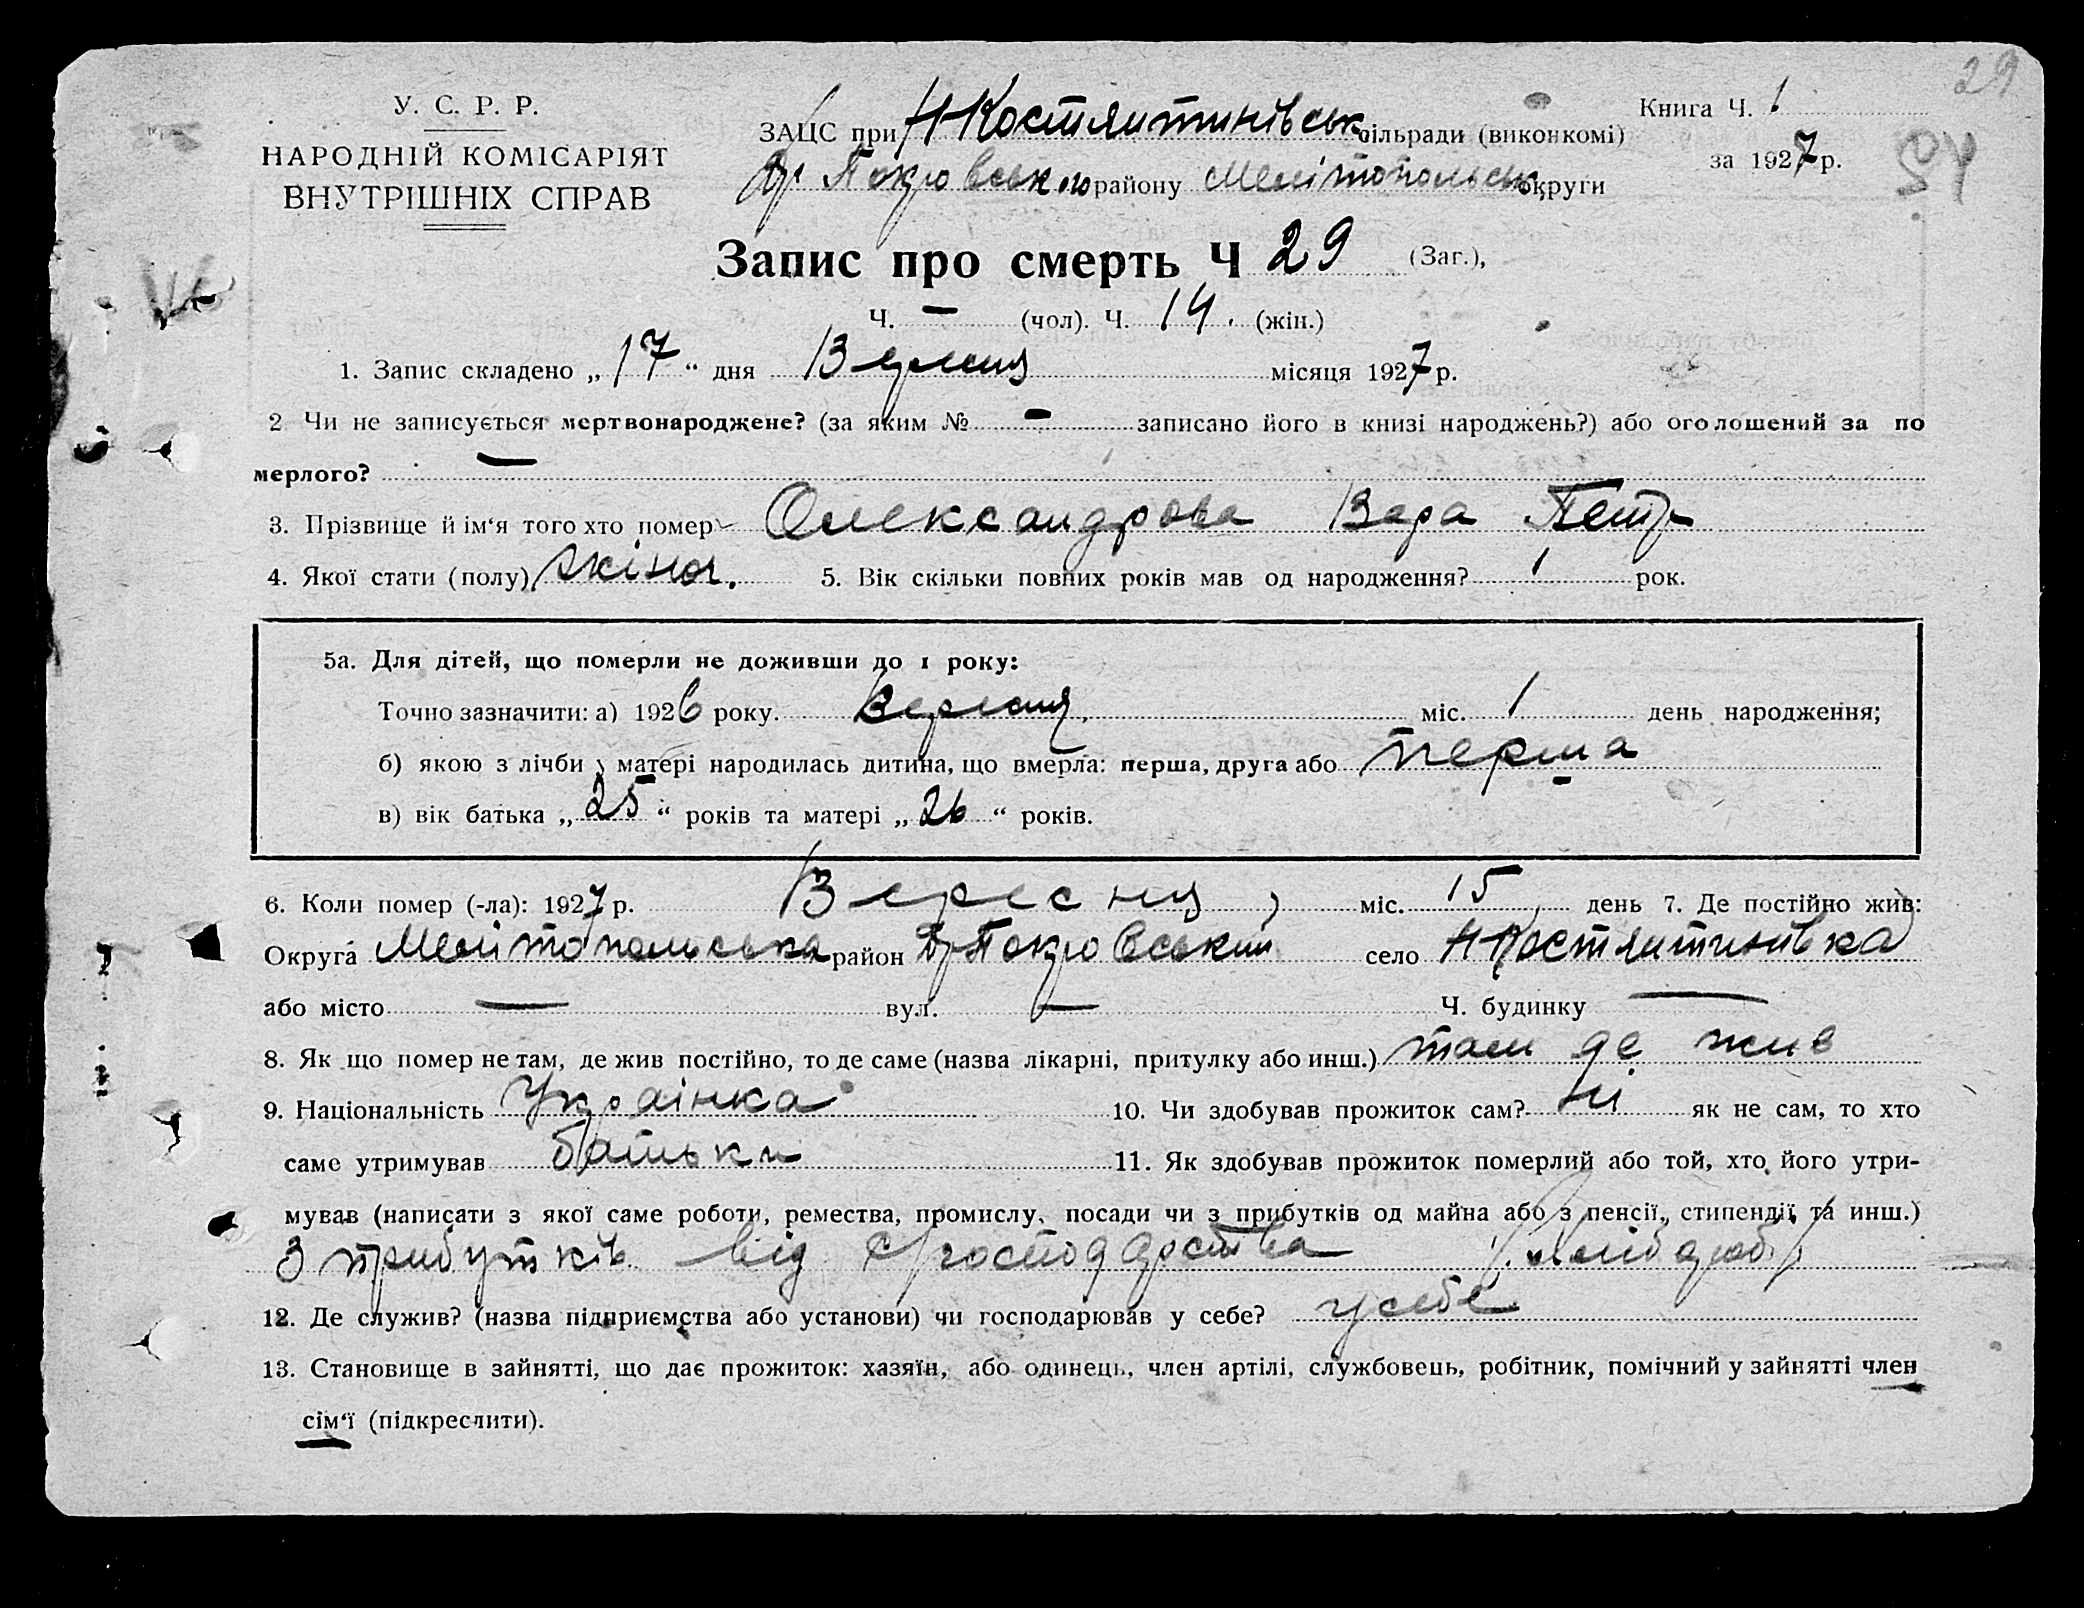 29
У. С. Р. Р.
НАРОДНІЙ КОМІСАРІЯТ
ВНУТРІШНІХ СПРАВ
ЗАЦС при Н Костянтинівськ сільради (виконкомі)
Пр Покровського району Мелітопольськ округи
Книга Ч. 1
за 1927 р.
Запис про смерть Ч 29 (Заг.),
Ч. — (чол). Ч. 14. (жін.)
1. Запис складено „17“ дня Вересня місяця 1927 р.
2 Чи не записується мертвонароджене? (за яким № — записано його в книзі народжень?) або оголошений за по
мерлого? —
3. Прізвище й ім'я того хто помер Олександрова Вера Петр
4. Якої стати (полу) жіноч. 5. Вік скільки повних років мав од народження? 1 рок.
5а. Для дітей, що померли не доживши до 1 року:
Точно зазначити: а) 1926 року. Вересня міс. 1 день народження;
б) якою з лічби у матері народилась дитина, що вмерла: перша, друга або перша
в) вік батька „25“ років та матері „26“ років.
6. Коли помер (-ла): 1927 р. Вересня міс. 15 день 7. Де постійно жив:
Округа Мелітопольська район Пр Покровський село Н Костянтинівка
або місто — вул. — Ч. будинку —
8. Як що помер не там, де жив постійно, то де саме (назва лікарні, притулку або инш.) там де жив
9. Національність Украінка 10. Чи здобував прожиток сам? ні як не сам, то хто
саме утримував батьки 11. Як здобував прожиток померлий або той, хто його утри-
мував (написати з якої саме роботи, ремества, промислу, посади чи з прибутків од майна або з пенсії, стипендії та инш.)
З прибутків від с/господарства /хлібороб/
12. Де служив? (назва підприємства або установи) чи господарював у себе? у себе
13. Становище в зайнятті, що дає прожиток: хазяїн, або одинець, член артілі, службовець, робітник, помічний у зайнятті член
сім'ї (підкреслити).